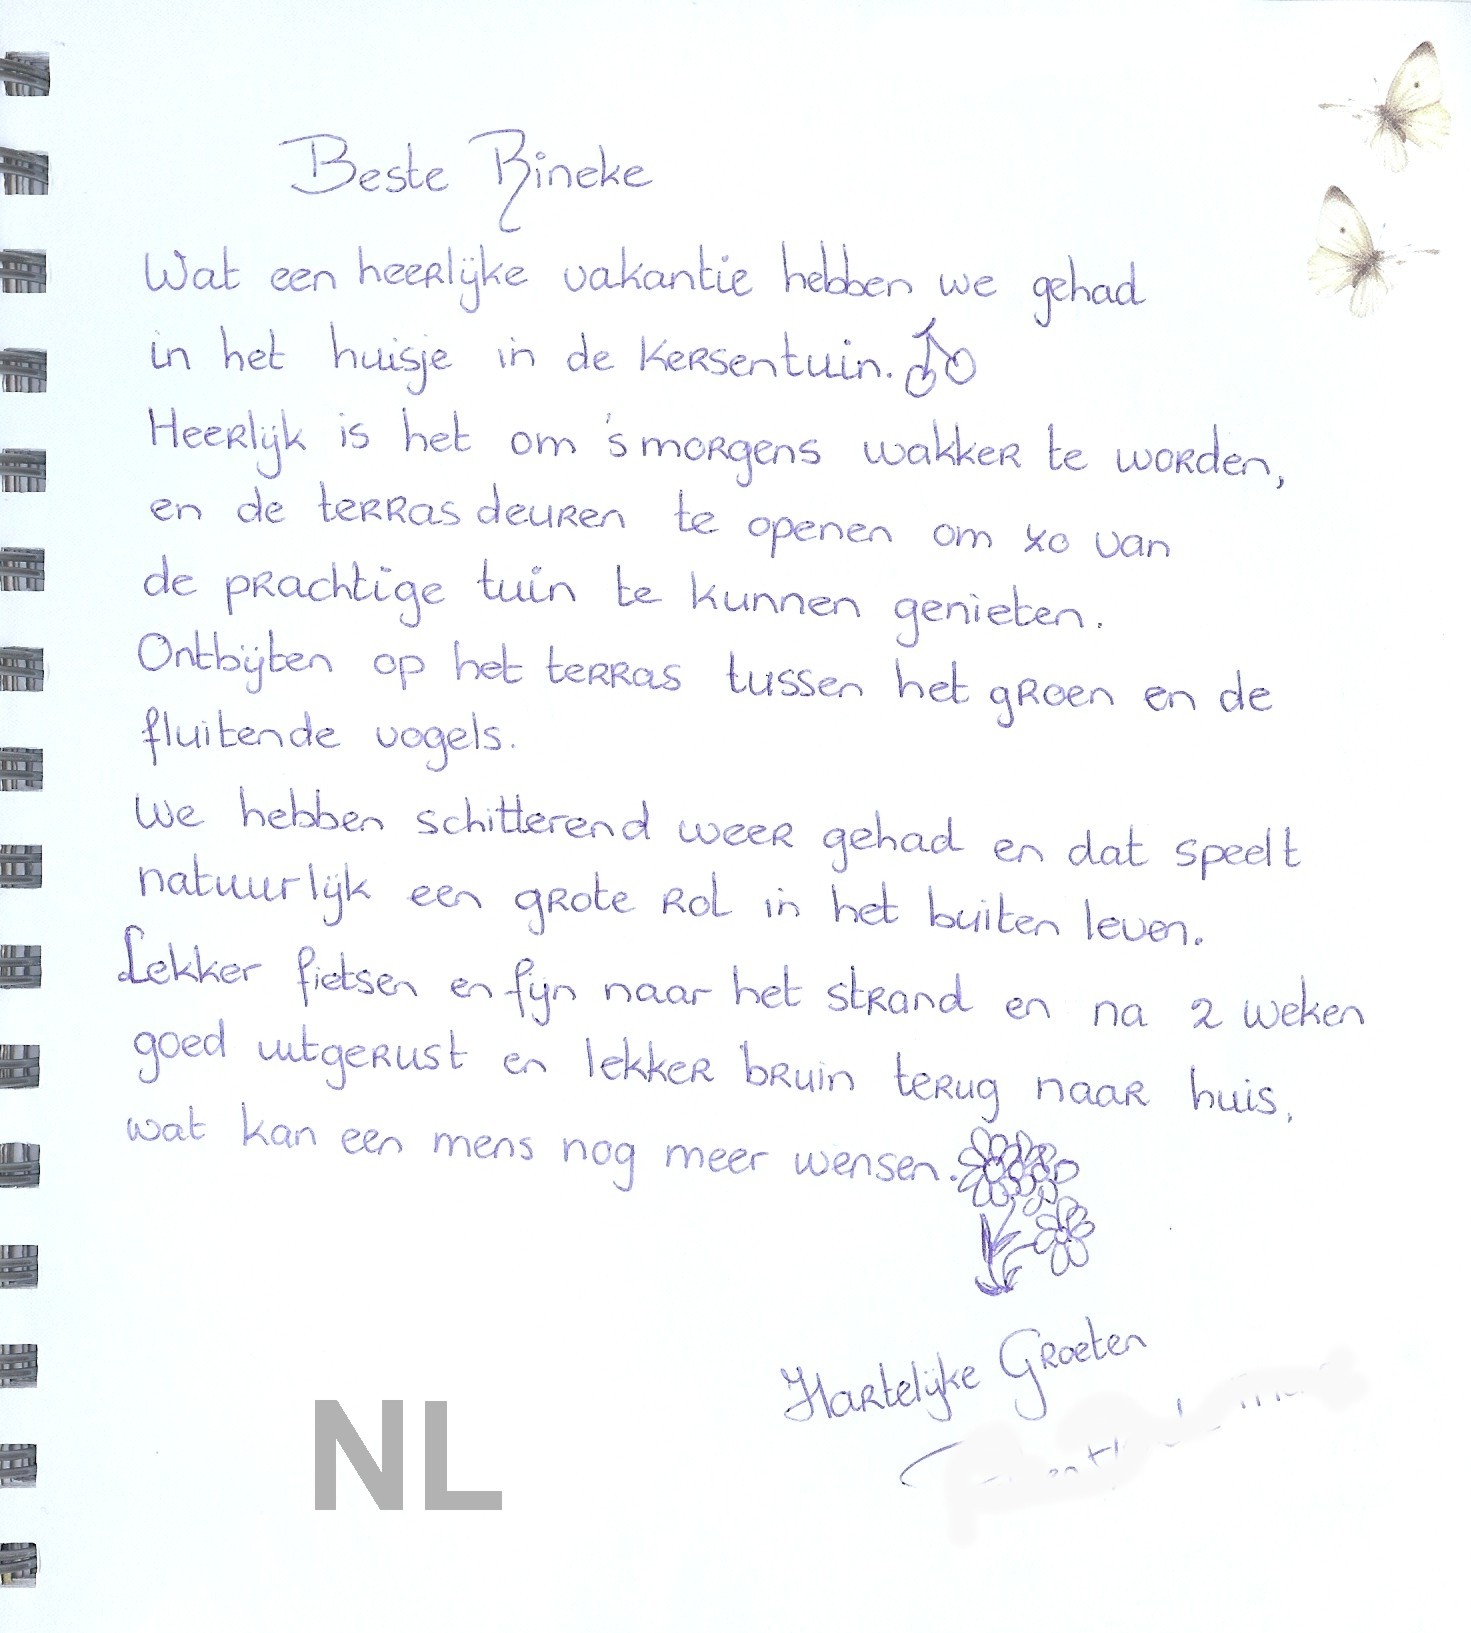 Beste Rineke
Wat een heerlijke vakantie hebben we gehad
in het huisje in de kersentuin.
Heerlijk is het om 's morgens wakker te worden,
en de terras deuren te openen om zo van
de prachtige tuin te kunnen genieten.
Ontbijten op het terras tussen het groen en de
fluitende vogels.
We hebben schitterend weer gehad en dat speelt
natuurlijk een grote rol in het buiten leven.
Lekker fietsen en fijn naar het strand en na 2 weken
goed uitgerust en lekker bruin terug naar huis,
wat kan een mens nog meer wensen.
Hartelijke Groeten
NL